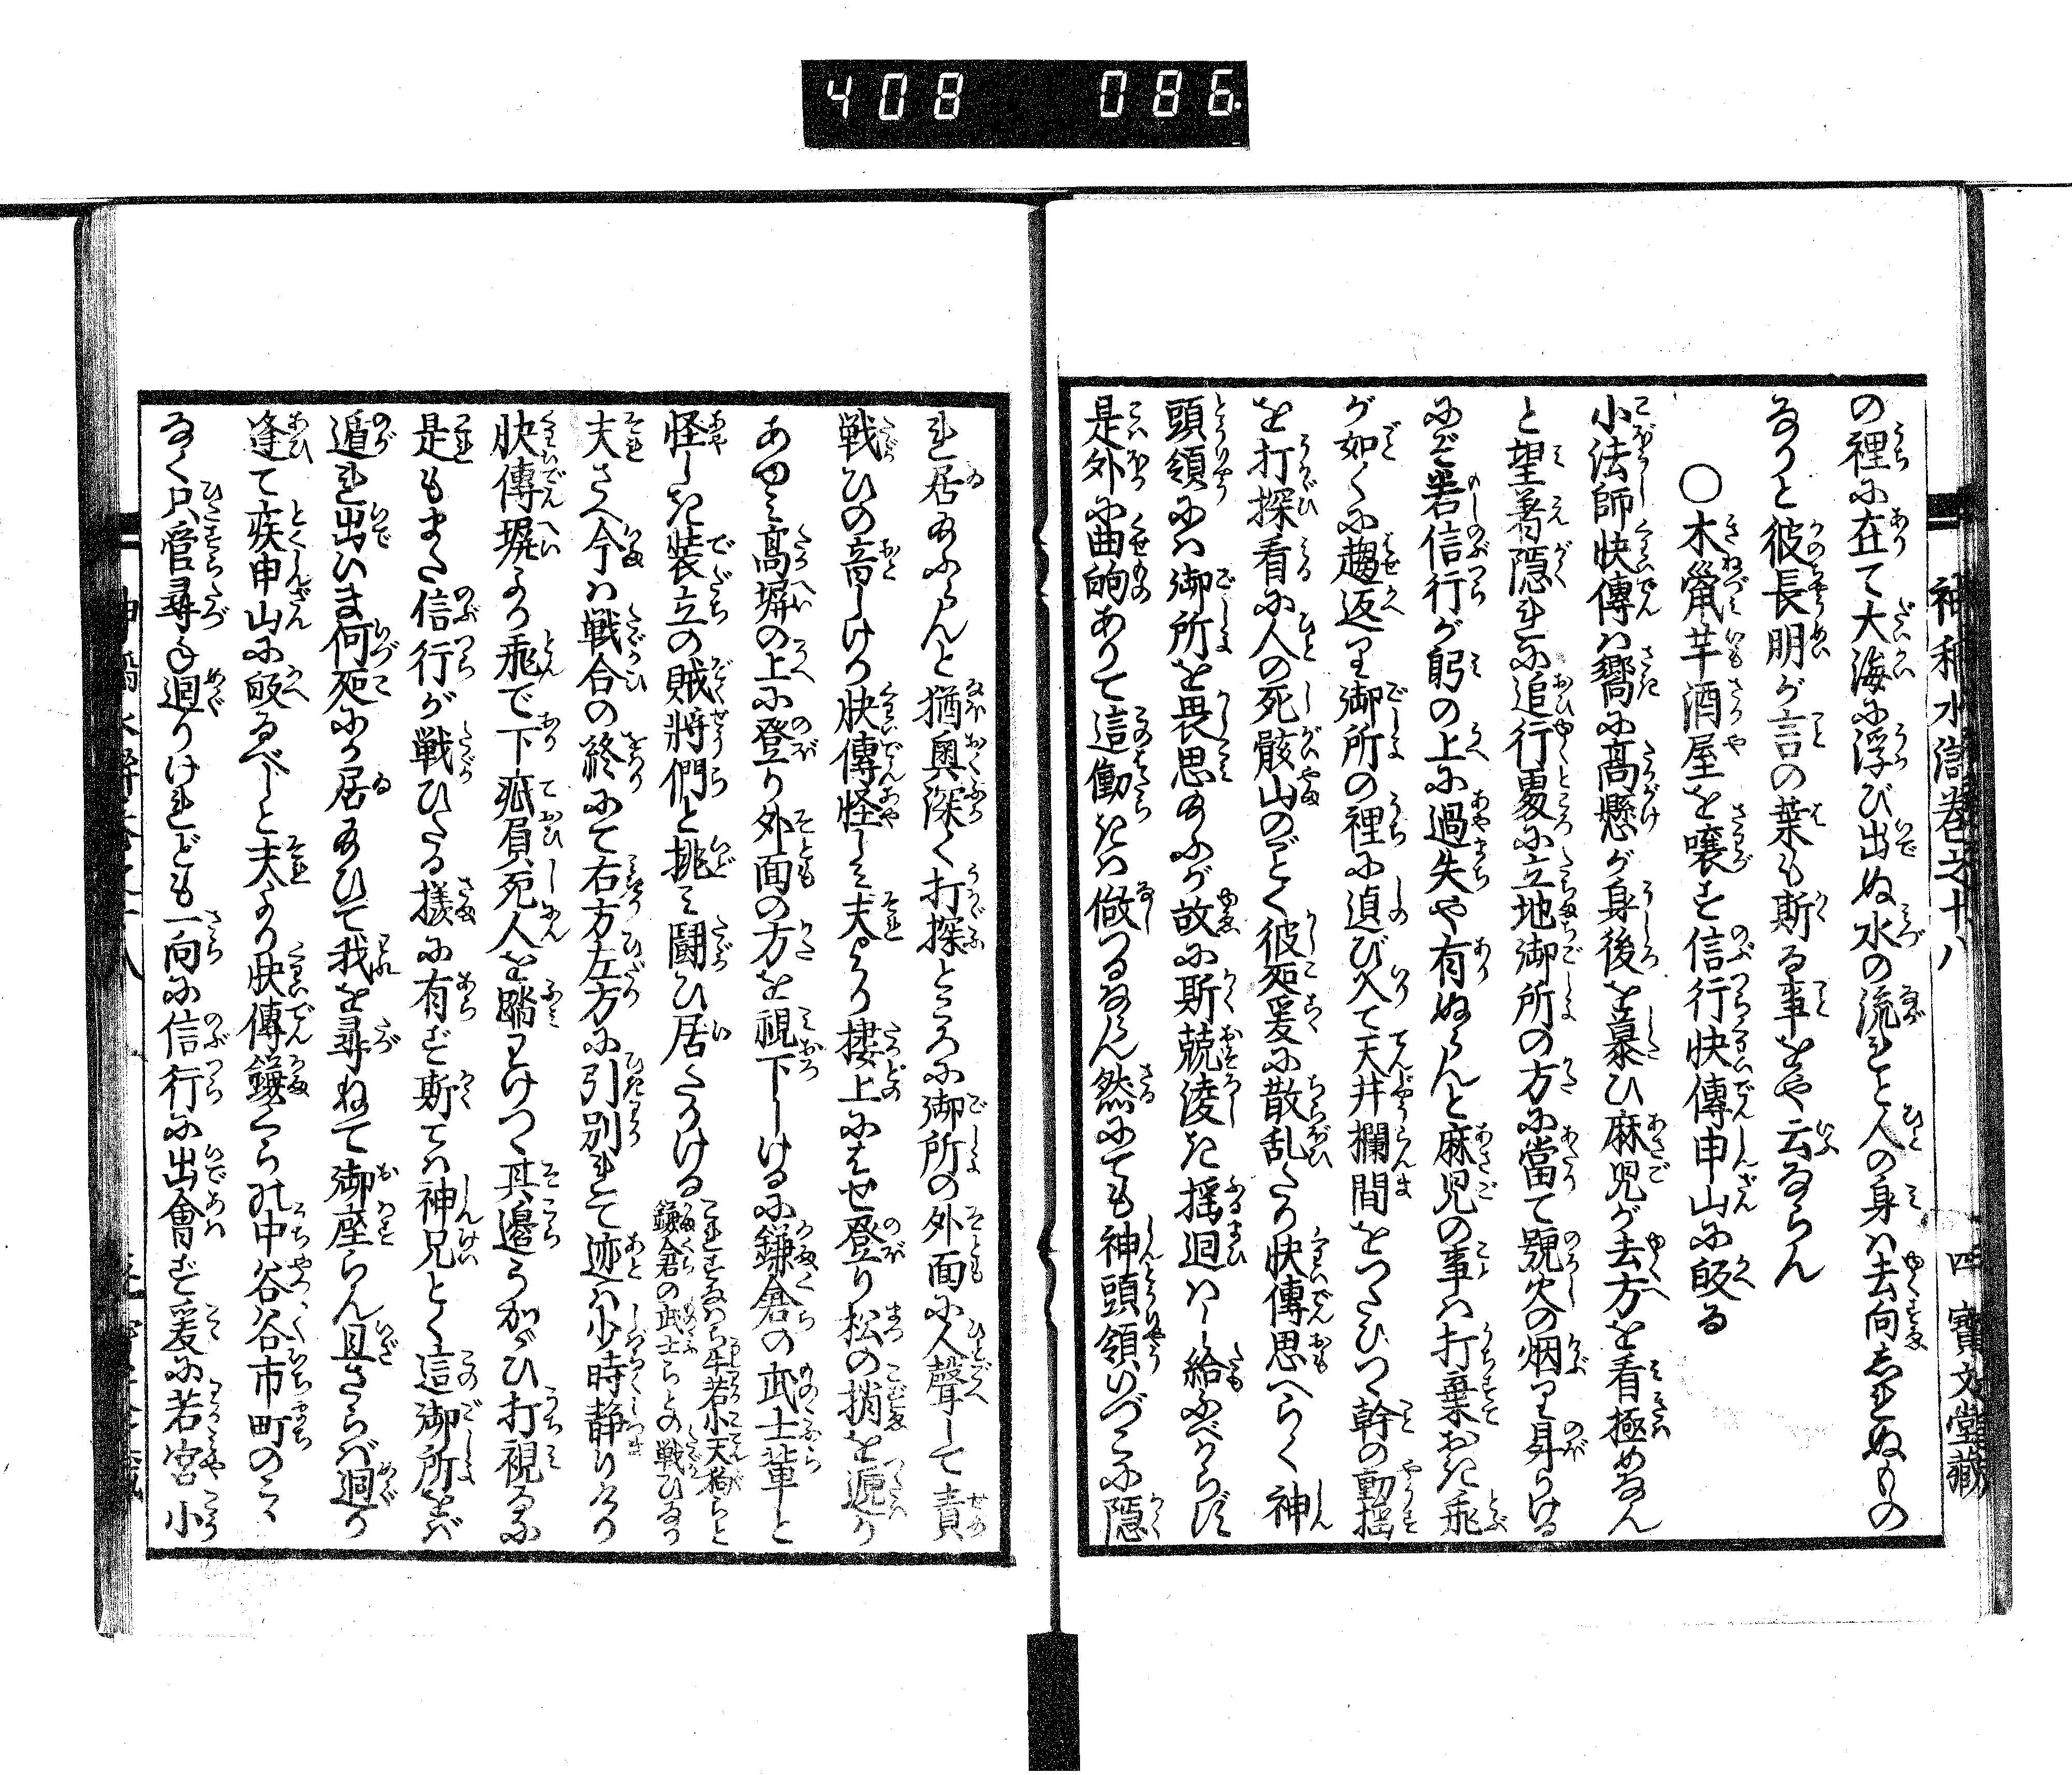 408 086
神稲水滸巻之十八 四 寳文堂藏
の裡に在て大海に浮び出ぬ水の流れと人の身ハ去向しれぬもの
なりと彼長明が言の葉も斯る事をや云ならん
○木鼠芋酒屋を嚷す信行快傳申山に皈る
小法師快傳ハ嚮に高懸が身後を慕ひ麻児が去方を看極めなん
と望着隠れに追行処に立地御所の方に當て覞火の烟り昇らける
にぞ若信行が躬の上に過失や有ぬらんと麻児の事ハ打棄おき飛
が如くに趨返り御所の裡に偵び入て天井欄間をつたひつゝ幹の動揺
を打探看に人の死骸山のごとく彼処爰に散乱たり快傳思へらく神
頭領にハ御所を畏思ふが故に斯兢凌き揺廻ハし給ふべからず
是外に曲的ありて這働きハ做つるなるん然にても神頭領いづこに隠
れ居給ふらんと猶奥深く打探ところに御所の外面に人聲して責
戦ひの音しけり快傳怪しミ夫より樓上にはせ登り松の梢を遞り
あゆミ高塀の上に登り外面の方を視下しけるに鎌倉の武士輩と
怪しき装立の賊将們と挑ミ闘ひ居たりける これすなハち牛若小天狗らと鎌倉の武士らとの戦ひなり
夫さへ今ハ戦合の終にて右方左方に引別れて迹ハ少時静りけり
快傳塀より飛で下疵負死人を踏わけつゝ其邉うかゞひ打視るに
是もまた信行が戦ひたる様に有ず斯てハ神兄とく這御所をバ
遁れ出ひま何処にか居給ひて我を尋ねて御座らん且さらバ迴り
逢て疾申山に皈るべしと夫より快傳鎌くらの中谷谷市町のミか
なく只管尋ね迴りけれども一向に信行に出會ず爰に若宮小